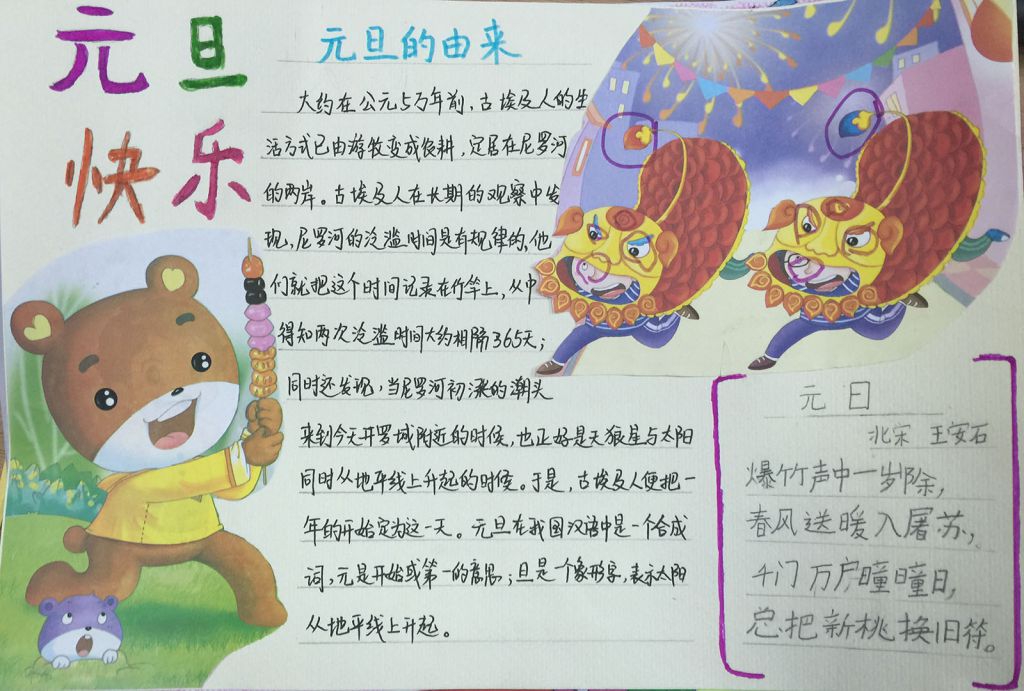 元旦
快乐
元旦的由来
大约在公元5万年前，古埃及人的生
活方式已由游牧变成农耕，定居在尼罗河
的两岸。古埃及人在长期的观察中发
现，尼罗河的泛滥时间是有规律的，他
们就把这个时间记录在竹竿上，从中
得知两次泛滥时间大约相隔365天；
同时还发现，当尼罗河初涨的潮头
来到今天开罗城附近的时候，也正好是天狼星与太阳
同时从地平线上升起的时候。于是，古埃及人便把一
年的开始定为这一天。元旦在我国汉语中是一个合成
词，元是开始或第一的意思；旦是个象形字，表示太阳
从地平线上升起。
元日
北宋 王安石
爆竹声中一岁除，
春风送暖入屠苏，
千门万户曈曈日，
总把新桃换旧符。